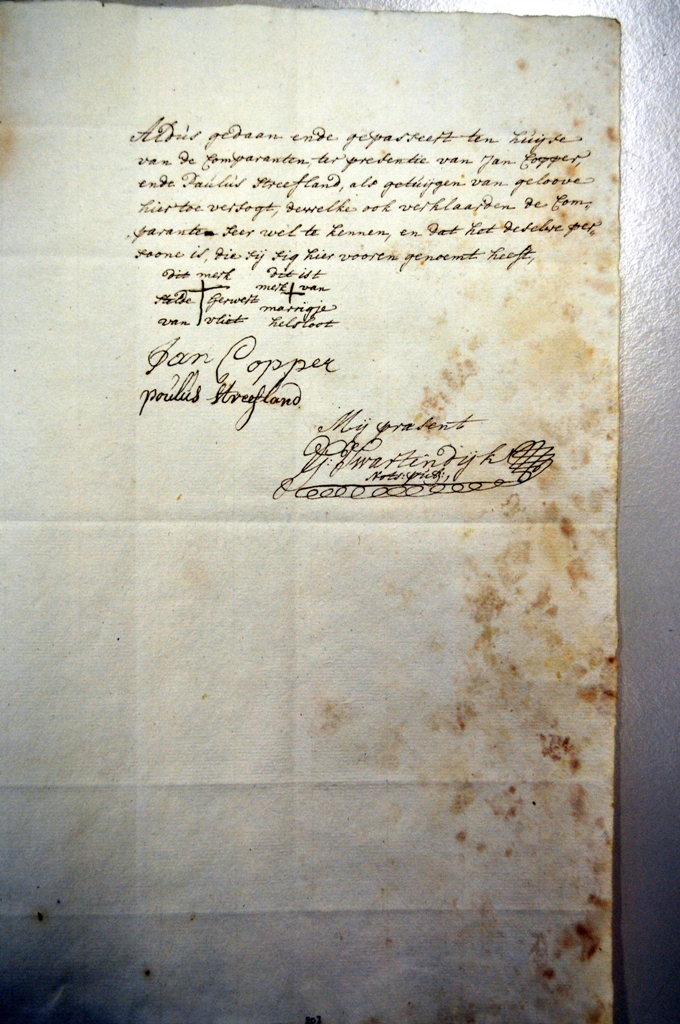 Aldus gedaan ende gepasseert ten huijse
van de Comparanten, ter presentie van Jan Copper,
ende Paulus Streefland, als getuijgen van geloove
hiertoe versogt, dewelke ook verklaarden de Com-
parante seer wel te kennen, en dat het deselve per-
soone is, die sij sig hier vooren genoemt heeft,
dit merk dit ist
merk van
stelde Gerwert marrigje
van vliet helsloot
Jan Copper
poulus Streefland
Mij present
G: Swartendijk
Nots: publ: